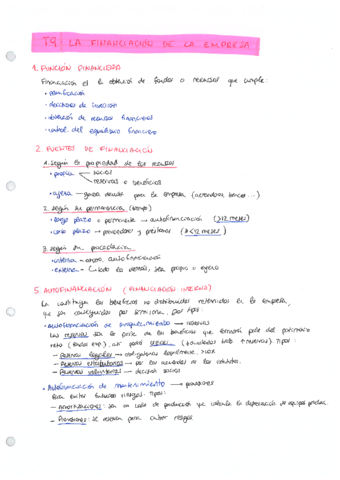 T9: LA FINANCIACIÓN DE LA EMPRESA
1. FUNCIÓN FINANCIERA
Financiación es la obtención de fondos o recursos que cumple:
• planificación
• decisiones de inversión
• obtención de recursos financieros
• control del equilibrio financiero
2. FUENTES DE FINANCIACIÓN
1. Según la propiedad de los recursos
• propia socios
reservas o beneficios
• ajena → genera deudas para la empresa (acreedores, bancos...)
2. Según su permanencia (tiempo)
• largo plazo o permanente → autofinanciación (>12 meses)
• corto plazo → proveedores y préstamos (<12 meses)
3. Según su procedencia
• interna → autofinanciación
• externa → todo lo demás, sea propio o ajeno
3. AUTOFINANCIACIÓN (FINANCIACIÓN INTERNA)
La constituyen los beneficios no distribuidos retenidos en la empresa,
que son por tipos:
• Autofinanciación de enriquecimiento → reservas
Las reservas son la parte de los beneficios que forman parte del patrimonio
neto (fondos exp.), así parte social (+ reservas). Tipos:
- Reservas legales → obligatorias legalmente.
- Reservas estatutarias → por los acuerdos de los estatutos.
- Reservas voluntarias → decisión socios
• Autofinanciación de mantenimiento → provisiones
Para evitar futuros riesgos. Tipos:
- Amortizaciones: son un coste de producción que calcula la depreciación de equipos
- Provisiones: se reservan para cubrir riesgos.